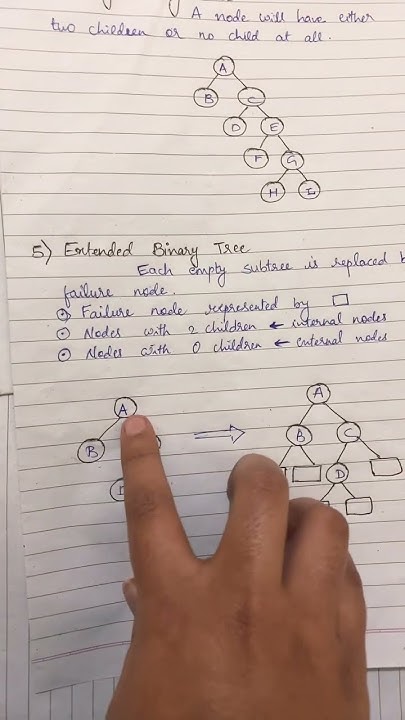 A node will have either
two children or no child at all.
A
B
C
D
E
F
G
H
I
5) Extended Binary Tree
Each empty subtree is replaced b
failure node.
Failure node represented by
Nodes with 2 children ← internal nodes
Nodes with 0 children ← external nodes
A
B
A
B
C
D